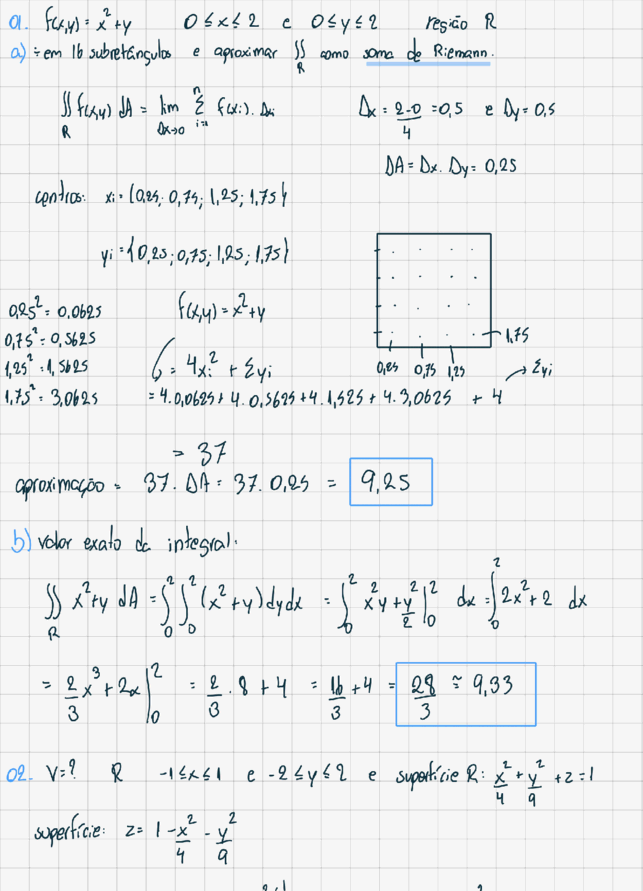 01. f(x,y) = x² + y 0 ≤ x ≤ 2 e 0 ≤ y ≤ 2 região R
a) ÷ em 16 subretângulos e aproximar ∬_R como soma de Riemann.
∬_R f(x,y) dA = lim_{Δx→0} Σ_{i=1}^{n} f(xi) . Δxi Δx = (2-0)/4 = 0,5 e Δy = 0,5
ΔA = Δx . Δy = 0,25
centros: xi = {0,25; 0,75; 1,25; 1,75}
yi = {0,25; 0,75; 1,25; 1,75}
0,25² = 0,0625 f(x,y) = x² + y
0,75² = 0,5625
1,75
1,25² = 1,5625 = 4xi² + Σyi
0,25 0,75 1,25 → Σyi
1,75² = 3,0625 = 4.0,0625 + 4.0,5625 + 4.1,525 + 4.3,0625 + 4
= 37
aproximação = 37. ΔA = 37. 0,25 = 9,25
b) valor exato da integral:
∬_R x² + y dA = ∫_0^2 ∫_0^2 (x² + y) dy dx = ∫_0^2 x²y + y²/2 |_0^2 dx = ∫_0^2 2x² + 2 dx
= 2/3 x³ + 2x |_0^2 = 2/3 . 8 + 4 = 16/3 + 4 = 28/3 ≅ 9,33
02. V=? R -1 ≤ x ≤ 1 e -2 ≤ y ≤ 2 e superfície R: x²/4 + y²/9 + z = 1
superfície: z = 1 - x²/4 - y²/9